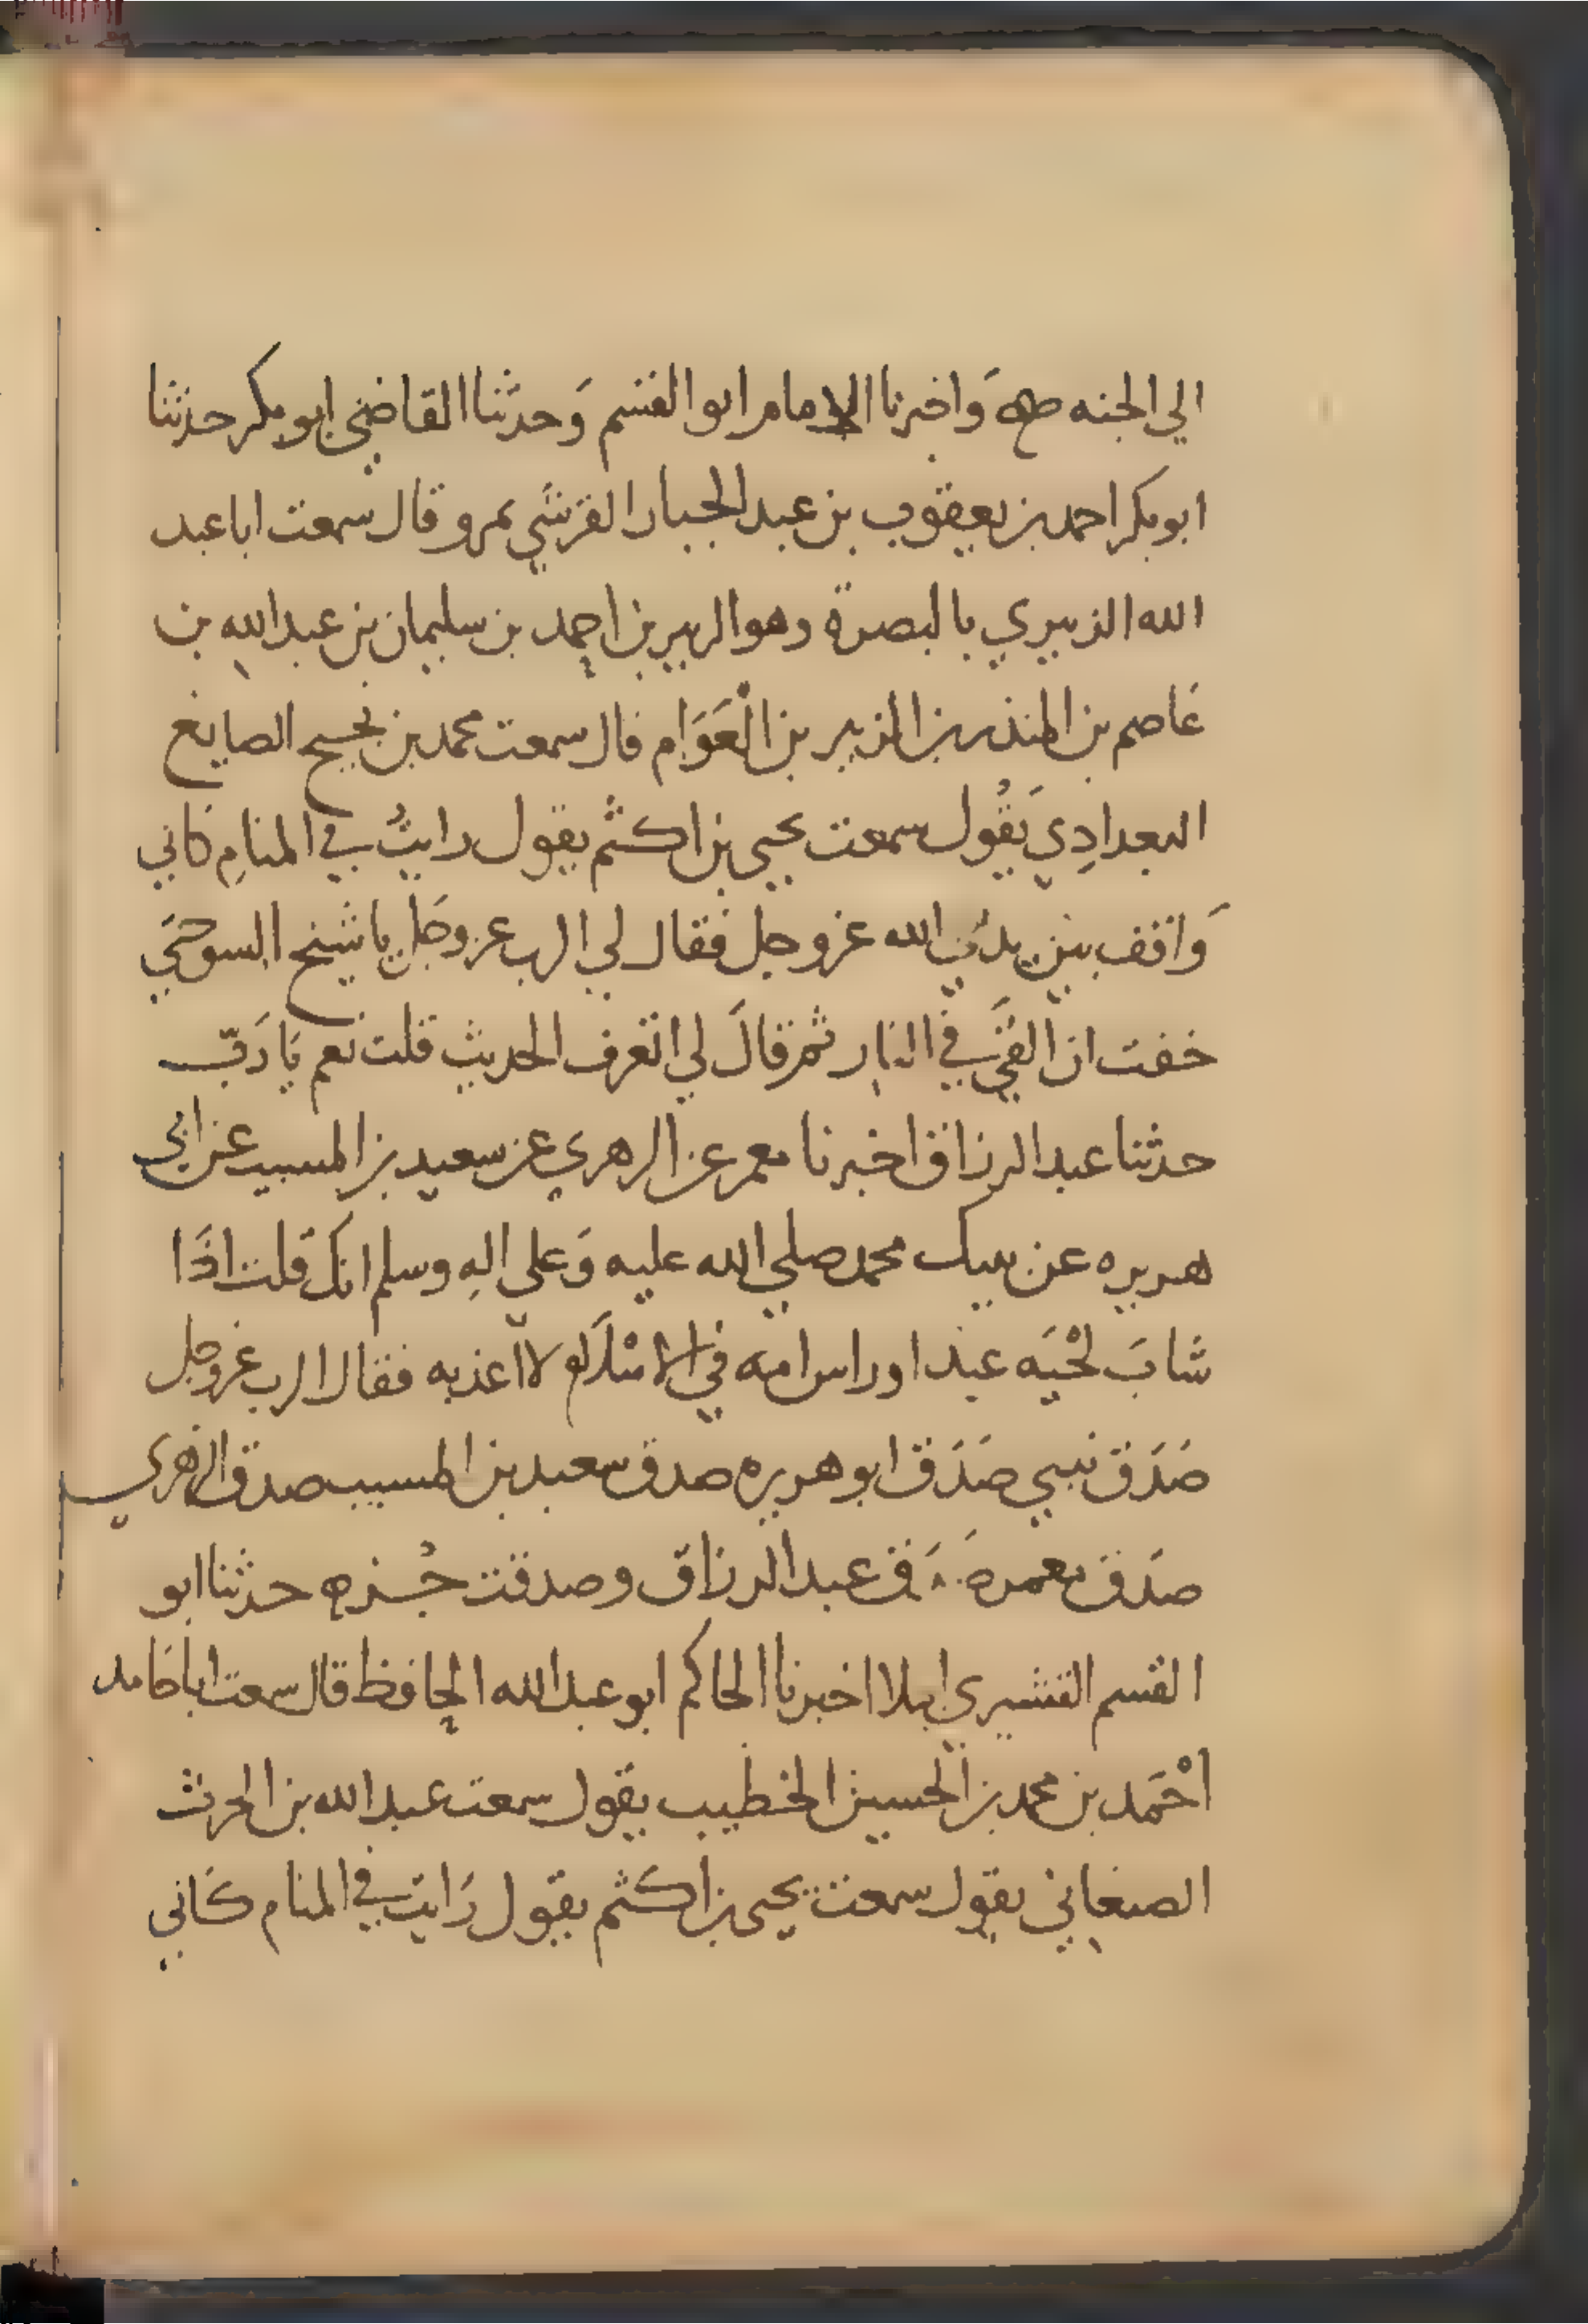 الي الجنه صح وَاخبرنا الامام ابو القسم وَحدثنا القاضي ابو بكر حدثنا
ابو بكر احمد بن يعقوب بن عبد الجبار القرشي بمرو قال سمعت ابا عبد
الله الزبيري بالبصرة وهو الزبير بن احمد بن سليمان بن عبد الله بن
عاصم بن المنذر بن الزبير بن الْعَوَام قال سمعت محمد بن نجيح الصايغ
البغدادِي يَقُول سمعت يحيى بن اكثم يقول رايتُ في المنامِ كاني
وَاقف بين يدَي الله عز وجل فقال لي الرب عز وجَل يا شيخ السو حتي
خفت ان القَي في النار ثم قالَ لي اتعرف الحديث قلت نعم يَا رَبّ
حدثنا عبد الرزاق اخبرنا معمر عن الزهري عن سعيد بن المسيب عن ابي
هريره عن نبيك محمد صلي الله عليه وَعلي الهِ وسلم انك قلت اذَا
شابَ لحْيَه عبد او راس امه في الاسْلَام لا اعذبه فقال الرب عز وجل
صَدَق نبيي صَدَق ابو هريره صدق سعيد بن المسيب صدق الزهري
صدَق معمر صَدَق عبد الرزاق وصدقت حدثنا ابو
القسم القشيري املا اخبرنا الحاكم ابو عبد الله الحافظ قال سمعت ابا حامد
احْمَد بن محمد بن الحسين الخطيب يقول سمعت عبد الله بن الحرث
الصنعاني يقول سمعت يحيى بن اكثم يقول رَايت في المنام كَاني